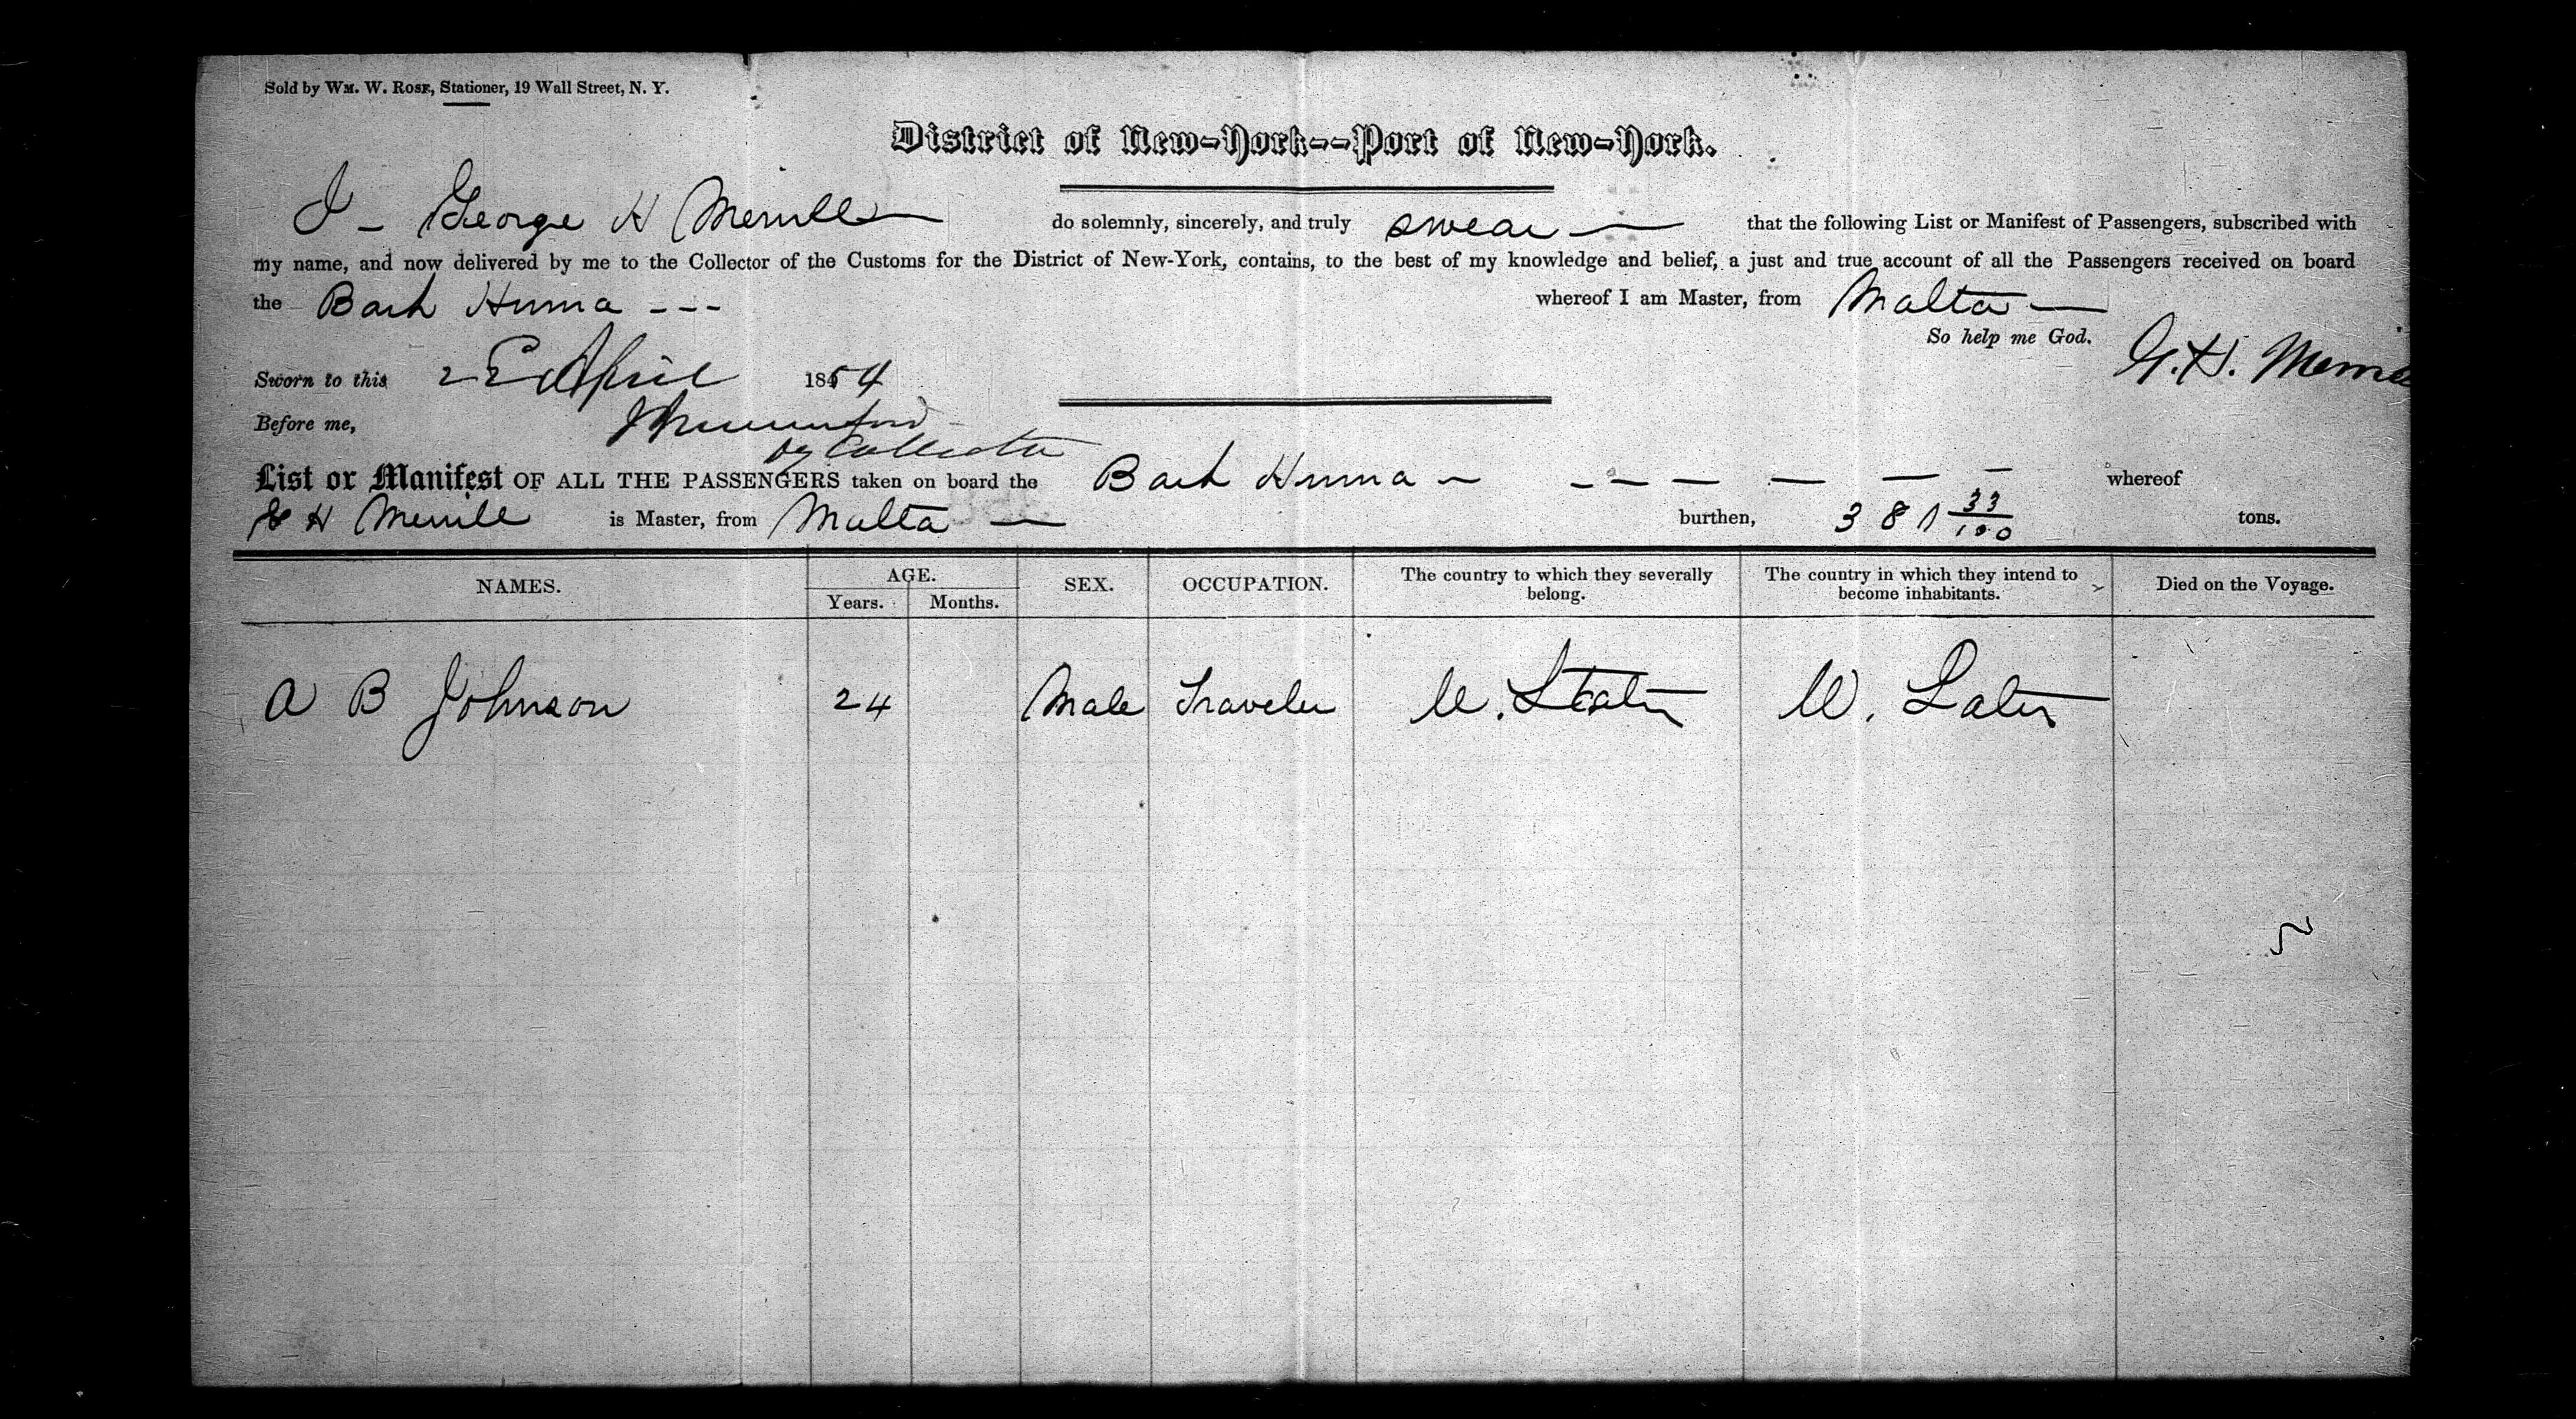 Sold by WM. W. ROSE, Stationer, 19 Wall Street, N. Y.
District of New-York--Port of New-York.
I - George H Merrill do solemnly, sincerely, and truly swear that the following List or Manifest of Passengers, subscribed with
my name, and now delivered by me to the Collector of the Customs for the District of New-York, contains, to the best of my knowledge and belief, a just and true account of all the Passengers received on board
the Bark Huma - - - whereof I am Master, from Malta
So help me God.
G. H. Merrill
Sworn to this 22 April 1854
Before me,
Collector
List or Manifest OF ALL THE PASSENGERS taken on board the Bark Huma - - - - - - whereof
G H Merrill is Master, from Malta burthen, 381 33/100 tons.
NAMES. AGE. SEX. OCCUPATION. The country to which they severally belong. The country in which they intend to become inhabitants. Died on the Voyage.
Years. Months.
A B Johnson 24 Male Traveler U. States U. States